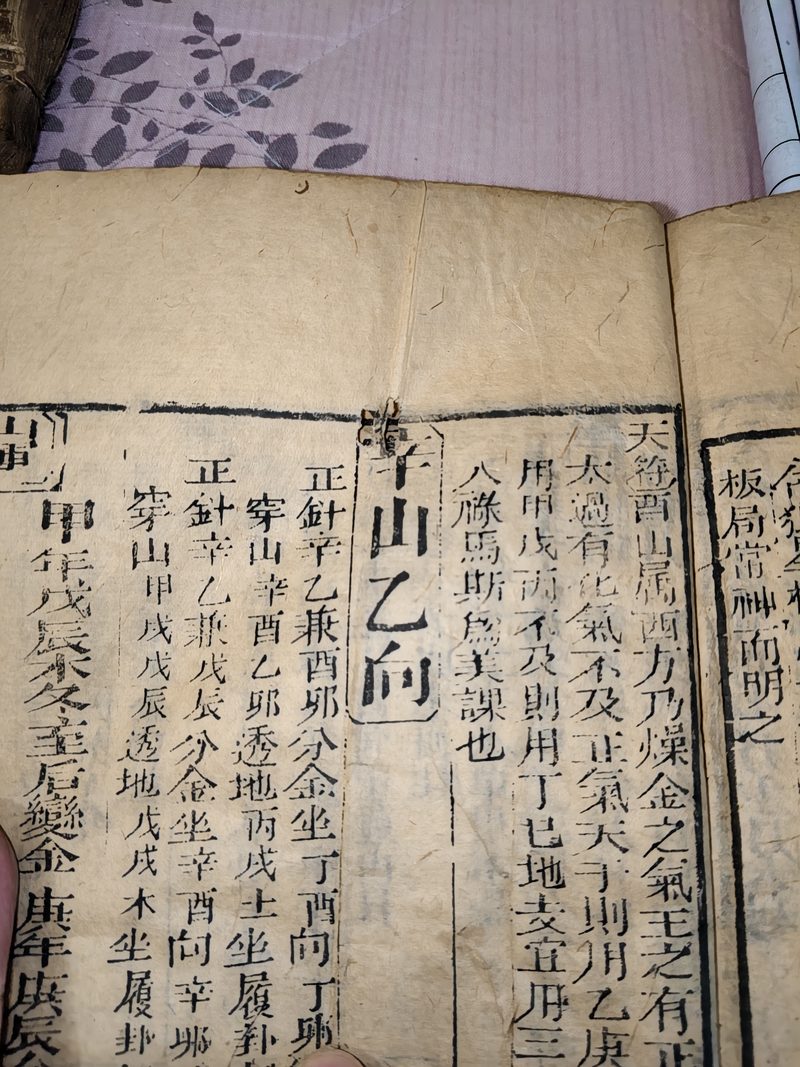 板局常神而明之
天符酉山属西方乃燥金之氣王之有正
太過有化氣不及正氣天干則用乙庚
用甲戊丙不及則用丁巳地支宜用三
八祿馬斯爲美課也
辛山乙向
正針辛乙兼酉卯分金坐丁酉向丁卯
穿山辛酉乙卯透地丙戌土坐履卦
正針辛乙兼戊辰分金坐辛酉向辛卯
穿山甲戌戊辰透地戊戌木坐履卦
甲年戊辰木冬至后變金庚年庚辰